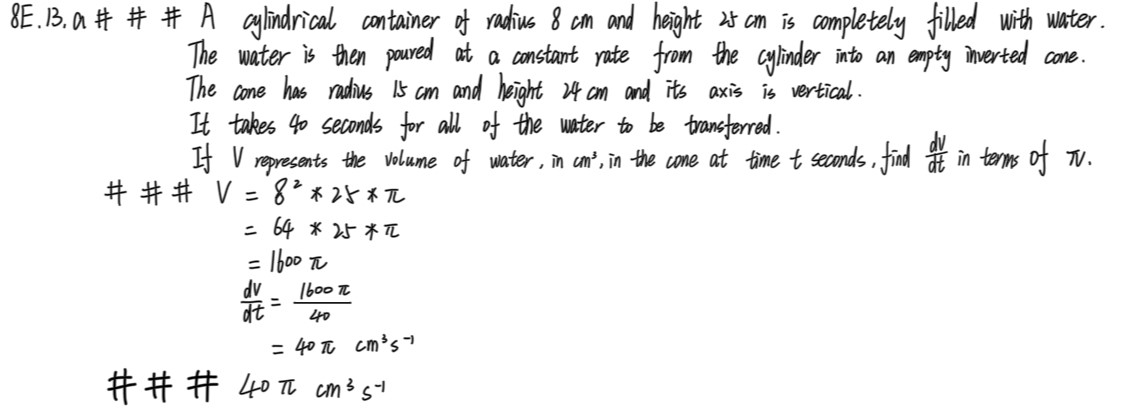 8E.13.a # # # A cylindrical container of radius 8 cm and height 25 cm is completely filled with water.
The water is then poured at a constant rate from the cylinder into an empty inverted cone.
The cone has radius 15 cm and height 24 cm and its axis is vertical.
It takes 40 seconds for all of the water to be transferred.
If V represents the volume of water, in cm³, in the cone at time t seconds, find dv/dt in terms of π.
# # # V = 8² * 25 * π
= 64 * 25 * π
= 1600 π
dv/dt = 1600 π / 40
= 40 π cm³ s⁻¹
# # # 40 π cm³ s⁻¹